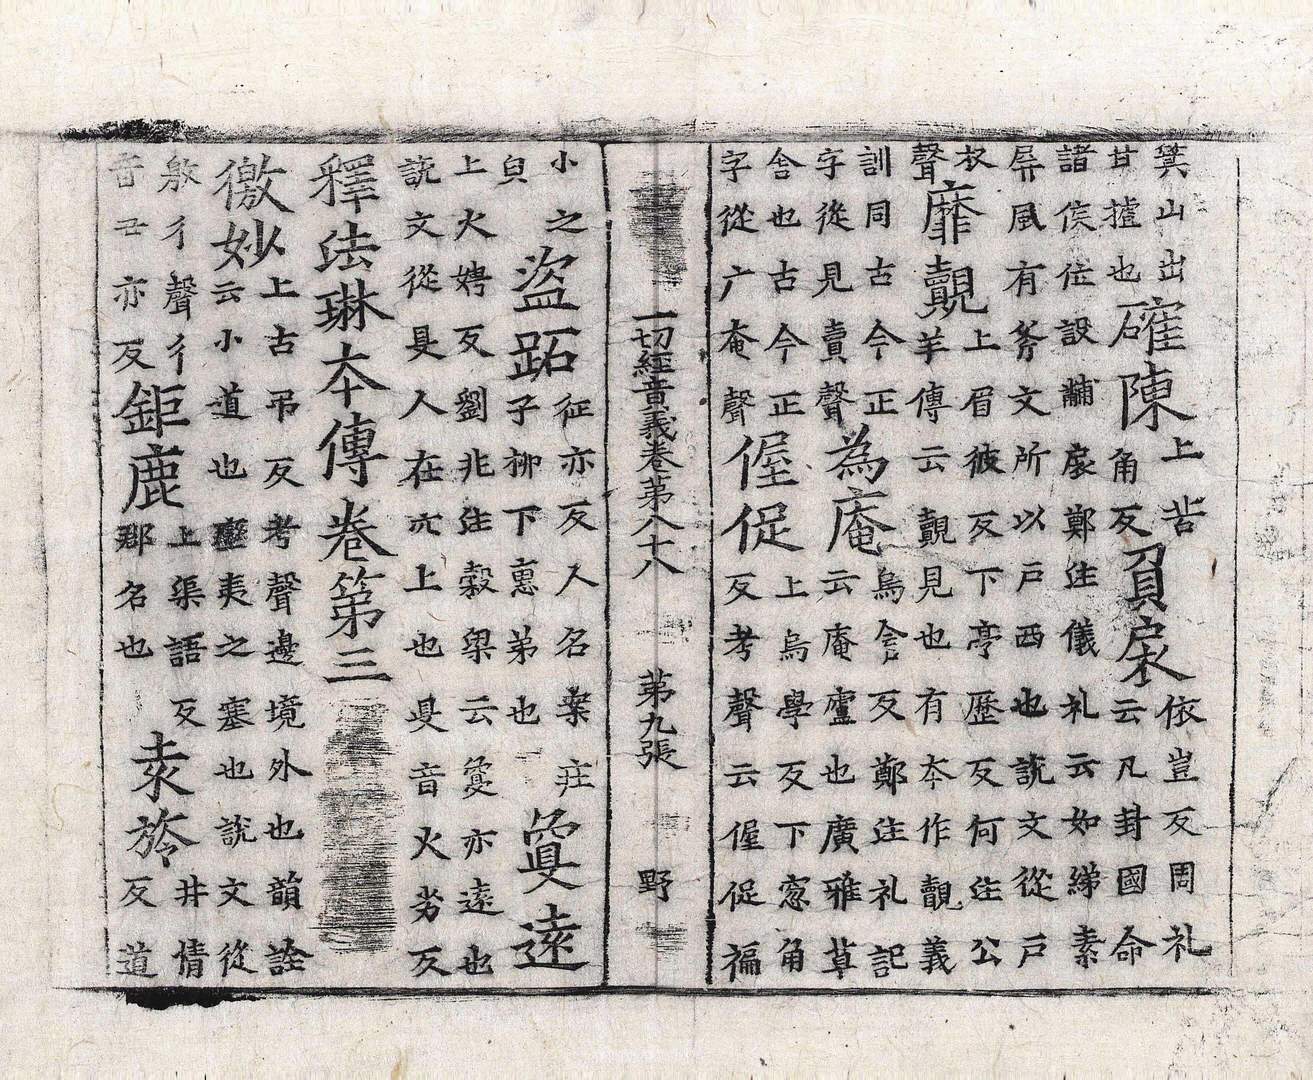 箕山出
甘攎也
確陳
上苦
角反
負扆
依豈反周礼
云凡封國命
諸侯位設黼扆鄭注儀礼云如綈素
屏風有斧文所以戶西也說文從戶
衣
聲
靡覿
上眉彼反下亭歷反何注公
羊傳云覿見也有本作觀義
訓同古今正
字從見賣聲
為庵
烏含反鄭注礼記
云庵廬也廣雅草
舍也古今正
字從广奄聲
偓促
上烏學反下窓角
反考聲云偓促褊
一切經音義卷第八十八 第九張 野
小之
皃
盜跖
征亦反人名案莊
子柳下惠弟也
敻遠
上火娉反劉兆注穀梁云敻亦遠也
說文從旻人在穴上也旻音火劣反
釋法琳本傳卷第三
徼妙
上古弔反考聲邊境外也韻詮
云小道也蠻夷之塞也說文從
敫彳聲彳
音丑亦反
鉅鹿
上渠語反
郡名也
旍
井情
反道